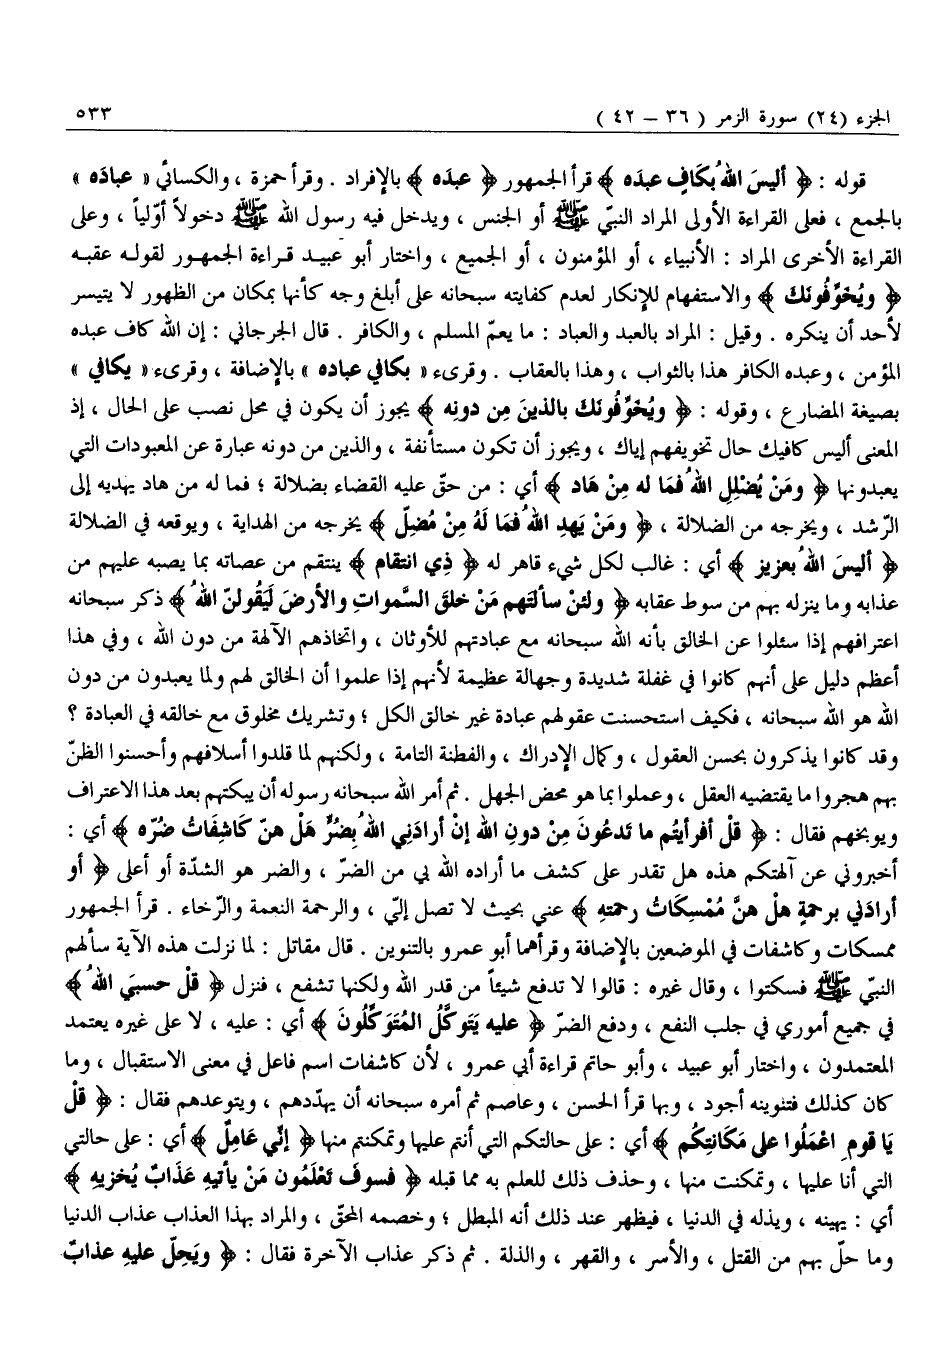 الجزء (٢٤) سورة الزمر ( ٣٦ – ٤٢ )
٥٣٣
قوله : ﴿ أليسَ اللهُ بكَافٍ عبدَه ﴾ قرأ الجمهور ﴿ عبدَه ﴾ بالإفراد . وقرأ حمزة ، والكسائي « عبادَه »
بالجمع ، فعلى القراءة الأولى المراد النبيّ ﷺ أو الجنس ، ويدخل فيه رسول الله ﷺ دخولاً أوّلياً ، وعلى
القراءة الأخرى المراد : الأنبياء ، أو المؤمنون ، أو الجميع ، واختار أبو عبيد قراءة الجمهور لقوله عقبه
﴿ ويُخوِّفُونَكَ ﴾ والاستفهام للإنكار لعدم كفايته سبحانه على أبلغ وجه كأنها بمكان من الظهور لا يتيسر
لأحد أن ينكره . وقيل : المراد بالعبد والعباد : ما يعمّ المسلم ، والكافر . قال الجرجاني : إن الله كاف عبده
المؤمن ، وعبده الكافر هذا بالثواب ، وهذا بالعقاب . وقرىء « بكافي عباده » بالإضافة ، وقرىء « يكافي »
بصيغة المضارع ، وقوله : ﴿ ويُخوِّفُونَكَ بالذينَ مِن دونِه ﴾ يجوز أن يكون في محل نصب على الحال ، إذ
المعنى أليس كافيك حال تخويفهم إياك ، ويجوز أن تكون مستأنفة ، والذين من دونه عبارة عن المعبودات التي
يعبدونها ﴿ ومَنْ يُضْلِلِ اللهُ فمَا له مِنْ هَاد ﴾ أي : من حقّ عليه القضاء بضلالة ؛ فما له من هاد يهديه إلى
الرّشد ، ويخرجه من الضلالة ، ﴿ ومَنْ يَهدِ اللهُ فمَا لَهُ مِنْ مُضِلّ ﴾ يخرجه من الهداية ، ويوقعه في الضلالة
﴿ أليسَ اللهُ بعزيز ﴾ أي : غالب لكل شيء قاهر له ﴿ ذِي انتقام ﴾ ينتقم من عصاته بما يصبه عليهم من
عذابه وما ينزله بهم من سوط عقابه ﴿ ولئنْ سألتَهم مَنْ خلقَ السَّمواتِ والأرضَ لَيَقُولنّ اللهُ ﴾ ذكر سبحانه
اعترافهم إذا سئلوا عن الخالق بأنه الله سبحانه مع عبادتهم للأوثان ، واتخاذهم الآلهة من دون الله ، وفي هذا
أعظم دليل على أنهم كانوا في غفلة شديدة وجهالة عظيمة لأنهم إذا علموا أن الخالق لهم ولما يعبدون من دون
الله هو الله سبحانه ، فكيف استحسنت عقولهم عبادة غير خالق الكل ؛ وتشريك مخلوق مع خالقه في العبادة ؟
وقد كانوا يذكرون بحسن العقول ، وكمال الإدراك ، والفطنة التامة ، ولكنهم لما قلدوا أسلافهم وأحسنوا الظنّ
بهم هجروا ما يقتضيه العقل ، وعملوا بما هو محض الجهل . ثم أمر الله سبحانه رسوله أن يبكتهم بعد هذا الاعتراف
ويوبخهم فقال : ﴿ قلْ أفرأيتُم ما تَدعُونَ مِنْ دونِ اللهِ إنْ أرادَنِي اللهُ بضُرٍّ هَلْ هنّ كَاشِفَاتُ ضُرِّه ﴾ أي :
أخبروني عن آلهتكم هذه هل تقدر على كشف ما أراده الله بي من الضرّ ، والضر هو الشدّة أو أعلى ﴿ أو
أرادَني برحمةٍ هلْ هنَّ مُمْسِكَاتُ رحمتهِ ﴾ عني بحيث لا تصل إليّ ، والرحمة النعمة والرّخاء . قرأ الجمهور
ممسكات وكاشفات في الموضعين بالإضافة وقرأهما أبو عمرو بالتنوين . قال مقاتل : لما نزلت هذه الآية سألهم
النبيّ ﷺ فسكتوا ، وقال غيره : قالوا لا تدفع شيئاً من قدر الله ولكنها تشفع ، فنزل ﴿ قلْ حسبيَ اللهُ ﴾
في جميع أموري في جلب النفع ، ودفع الضرّ ﴿ عليه يَتوكَّلُ المُتَوكِّلُونَ ﴾ أي : عليه ، لا على غيره يعتمد
المعتمدون ، واختار أبو عبيد ، وأبو حاتم قراءة أبي عمرو ، لأن كاشفات اسم فاعل في معنى الاستقبال ، وما
كان كذلك فتنوينه أجود ، وبها قرأ الحسن ، وعاصم ثم أمره سبحانه أن يهدّدهم ، ويتوعدهم فقال : ﴿ قلْ
يَا قومِ اعْمَلُوا على مَكَانتِكُم ﴾ أي : على حالتكم التي أنتم عليها وتمكنتم منها ﴿ إنّي عَامِلٌ ﴾ أي : على حالتي
التي أنا عليها ، وتمكنت منها ، وحذف ذلك للعلم به مما قبله ﴿ فسوفَ تَعْلَمُون مَنْ يأتيهِ عَذَابٌ يُخزيهِ ﴾
أي : يهينه ، ويذله في الدنيا ، فيظهر عند ذلك أنه المبطل ؛ وخصمه المحقّ ، والمراد بهذا العذاب عذاب الدنيا
وما حلّ بهم من القتل ، والأسر ، والقهر ، والذلة . ثم ذكر عذاب الآخرة فقال : ﴿ ويَحِلّ عليهِ عذابٌ